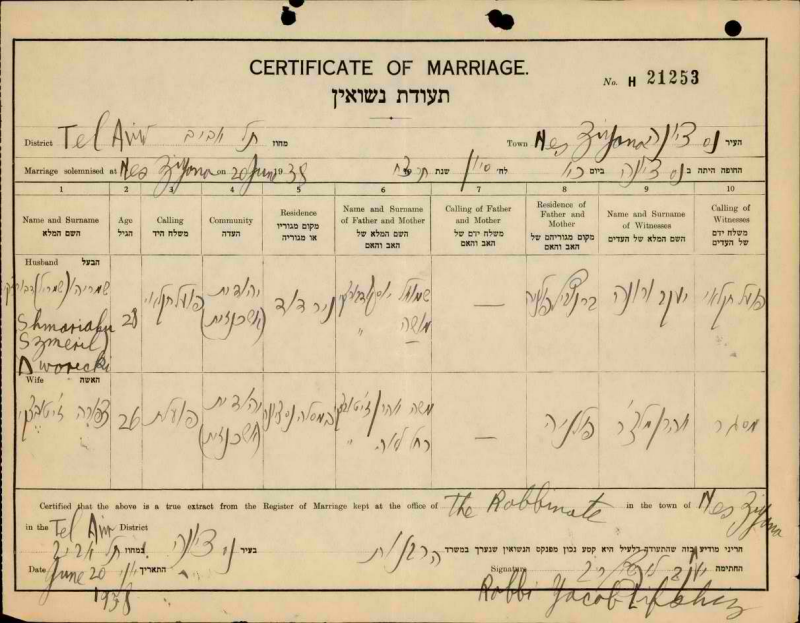 CERTIFICATE OF MARRIAGE.
No. H 21253
תעודת נשואין
District Tel Aviv תל אביב מחוז Town Nes Ziyona נס ציונה העיר
Marriage solemnised at Nes Ziyona on 20 June 1938 שנת לח' סיון ביום החופה היתה ב נס ציונה
1 2 3 4 5 6 7 8 9 10
Name and Surname
השם המלא
Age
הגיל
Calling
משלח היד
Community
העדה
Residence
מקום מגוריו
או מגוריה
Name and Surname
of Father and Mother
השם המלא של
האב והאם
Calling of Father
and Mother
משלח ידם של
האב והאם
Residence of
Father and
Mother
מקום מגוריהם של
האב והאם
Name and Surname
of Witnesses
השם המלא של העדים
Calling of
Witnesses
משלח ידם
של העדים
Husband הבעל
שמריהו (שמריל)
Shmariahu
Szmeril
Dworecki
28
פועל חקלאי
יהודית
(אשכנזית)
ניר דוד
שמואל
משה
—
פולניה
יעקב
פועל חקלאי
Wife האשה
צפורה
26
פועלת
יהודית
(אשכנזית)
נס ציונה
משה אהרן
רחל לאה
—
פולניה
אהרן מלצר
מסגר
Certified that the above is a true extract from the Register of Marriage kept at the office of The Rabbinate in the town of Nes Ziyona
in the Tel Aviv District
הריני מודיע בזה שהתעודה דלעיל היא קטע נכון מפנקס הנשואין שנערך במשרד הרבנות
בעיר נס ציונה במחוז תל אביב
Date June 20 1938 התאריך
Signature החתימה
Rabbi Yacob Lifshez